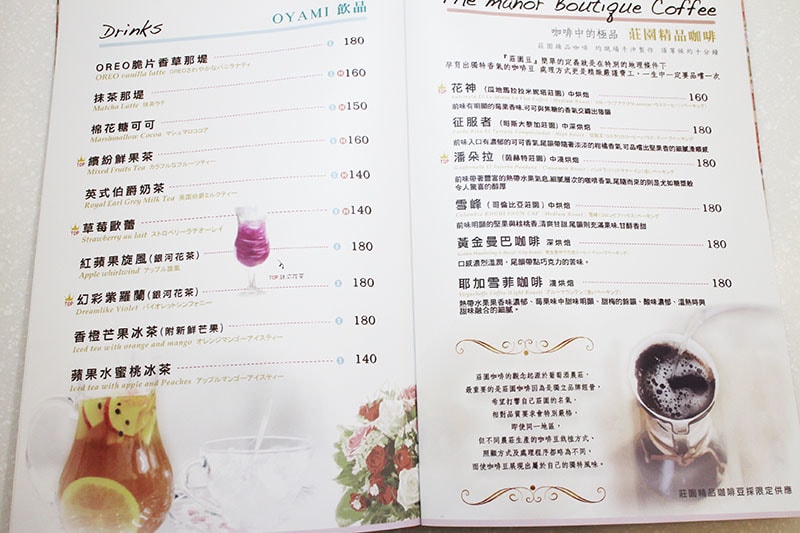 Drinks
OYAMI 飲品
OREO脆片香草那堤 180
OREO vanilla latte OREOさわやかなバニラティ
抹茶那堤 H 160
Matcha Latte 抹茶ラテ
棉花糖可可 H 150
Marshmallow Cocoa マシュマロココア
TOP 繽紛鮮果茶 H 160
Mixed Fruits Tea カラフルなフルーツティー
英式伯爵奶茶 H 140
Royal Earl Grey Milk Tea 英国伯爵ミルクティー
TOP 草莓歐蕾 H 140
Strawberry au lait ストロベリーラテオーレイ
紅蘋果旋風(銀河花茶) 180
Apple whirlwind アップル旋風
TOP 幻彩紫羅蘭(銀河花茶) 180
Dreamlike Violet バイオレットシンフォニー
香橙芒果冰茶(附新鮮芒果) 180
Iced tea with orange and mango オレンジマンゴーアイスティー
蘋果水蜜桃冰茶 140
Iced tea with apple and Peaches アップルマンゴーアイスティー
The Manor Boutique Coffee
咖啡中的極品 莊園精品咖啡
莊園精品咖啡 均現場手沖製作 須等候約十分鐘
『莊園豆』簡單的定義就是在特別的地理條件下
孕育出獨特香氣的咖啡豆 處理方式更是精緻嚴謹費工,一生中一定要品嚐一次
TOP 花神 (瓜地馬拉拉米妮塔莊園) 中烘焙 160
前味有明顯的莓果香味,可可與焦糖的香氣交織出後韻
征服者 (哥斯大黎加莊園) 中深烘焙 180
前味入口有濃郁的可可香氣,尾韻帶隨著淡淡的柑橘香氣,可品嚐出堅果香的細膩滑順感
TOP 潘朵拉 (茵赫特莊園) 中淺烘焙 180
前味帶著豐富的熱帶水果氣息,細膩層次的咖啡香氣,尾隨而來的則是尤如糖漿般
令人驚喜的醇厚
雪峰 (哥倫比亞莊園) 中烘焙 180
前味明顯的堅果與桂桃香,清爽甘甜,尾韻則充滿果味,甘醇香甜
黃金曼巴咖啡 深烘焙 180
口感濃烈溫潤,尾韻帶點巧克力的苦味。
耶加雪菲咖啡 淺烘焙 180
熱帶水果果香味濃郁、莓果味中甜味明顯、甜梅的餘韻、酸味濃郁、溫熱時與
甜味融合的細膩。
莊園咖啡的觀念起源於葡萄酒農莊,
最重要的是莊園咖啡因為是獨立品牌經營,
希望打響自己莊園的名氣,
相對品質要求會特別嚴格,
即使同一地區,
但不同農莊生產的咖啡豆栽植方式,
照顧方式及處理程序都略為不同,
而使咖啡豆展現出屬於自己的獨特風味。
莊園精品咖啡豆採限定供應